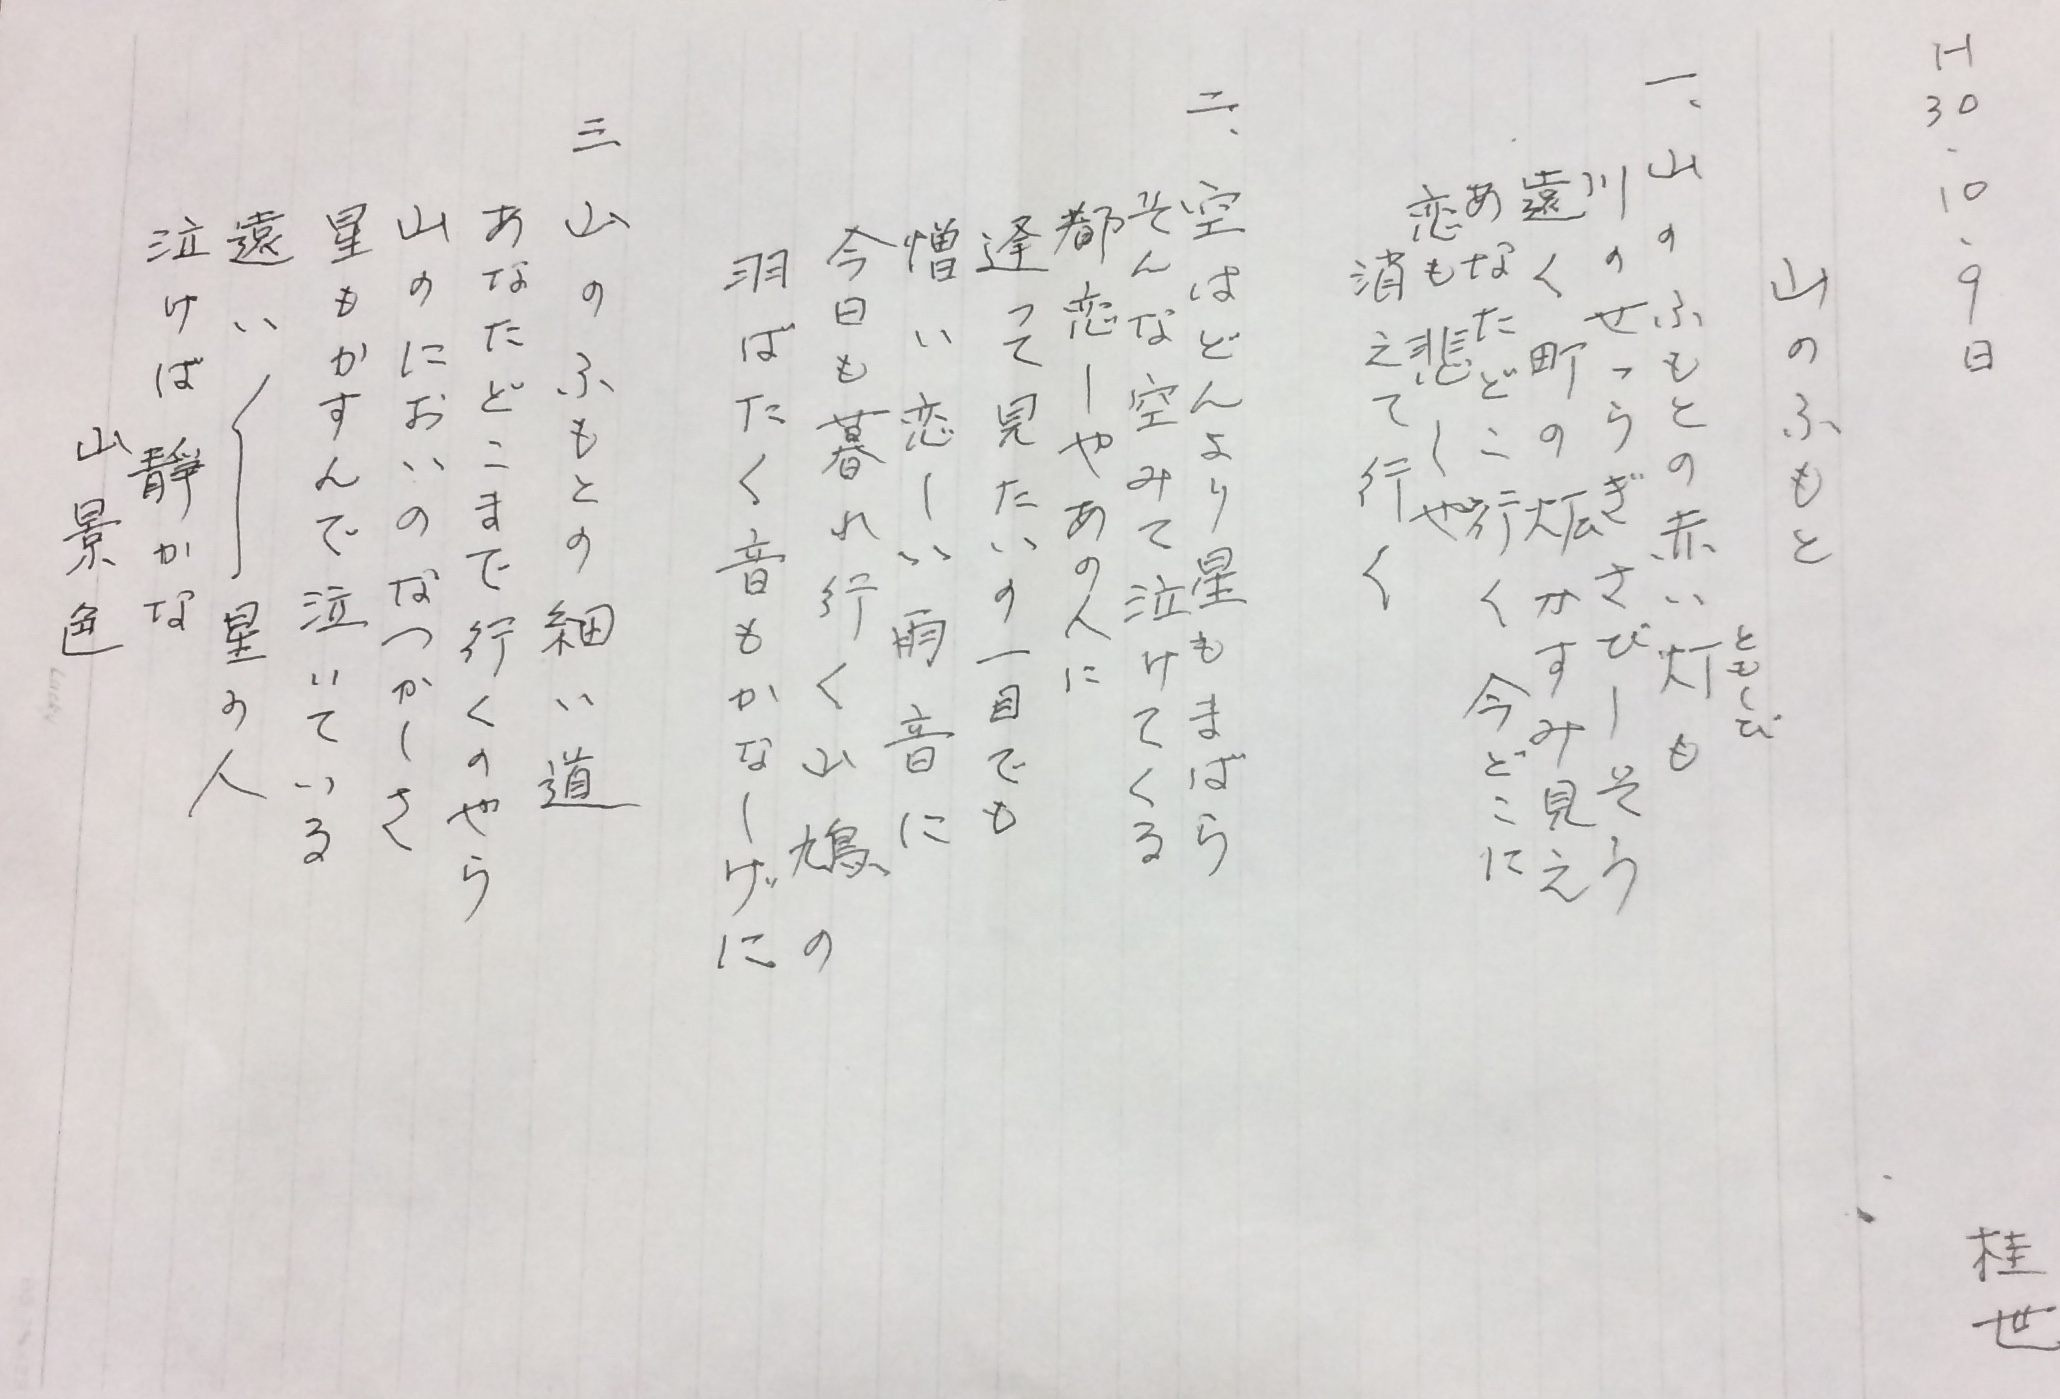 H30.10.9日
桂世
山のふもと
一、山のふもとの赤い灯も
ともしび
川のせっらぎさびしそう
遠く町の灯かすみ見え
あなたどこ行く今どこに
恋も悲しや
消えて行く
二、空はどんより星もまばら
そんな空みて泣けてくる
都恋しやあの人に
逢って見たいの一目でも
憎い恋しい雨音に
今日も暮れ行く山鳩の
羽ばたく音もかなしげに
三 山のふもとの細い道
あなたどこまで行くのやら
山のにおいのなつかしさ
星もかすんで泣いている
遠い〱星の人
泣けば静かな
山景色